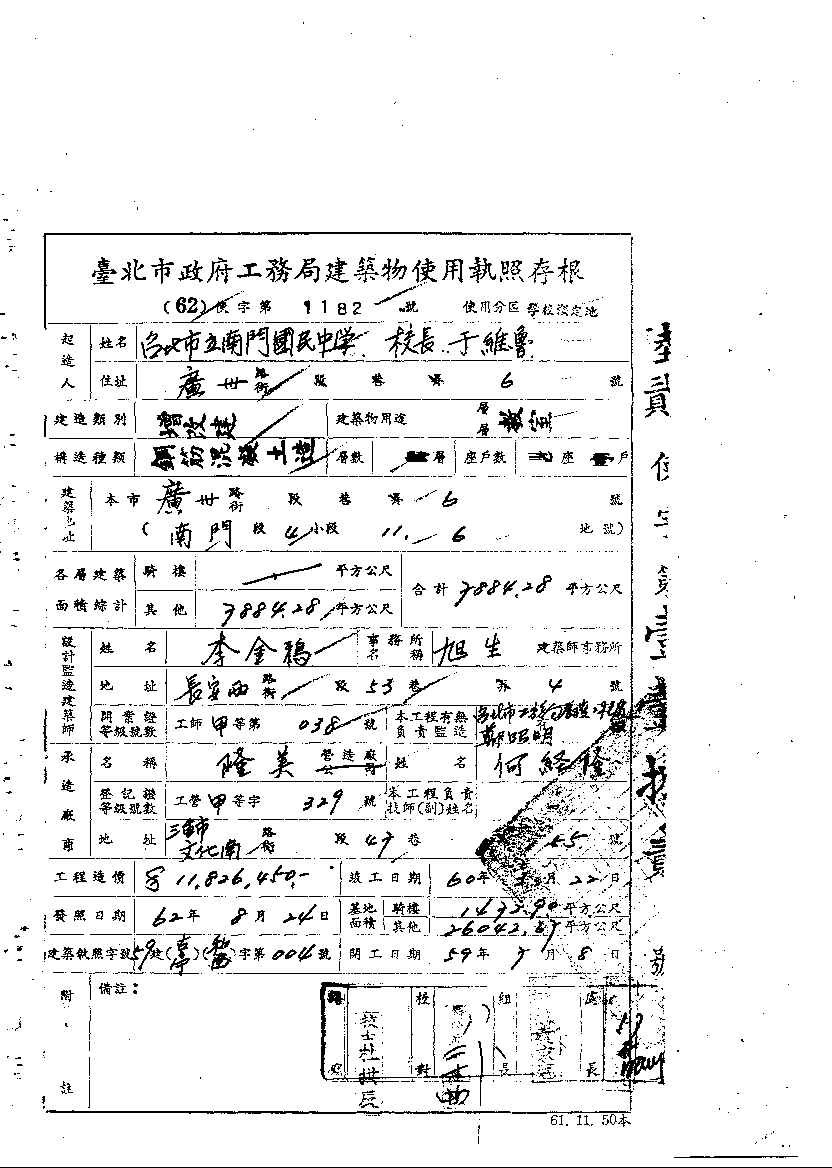 臺北市政府工務局建築物使用執照存根
(62)使字第 1182 號 使用分區 學校預定地
起造人 姓名 台北市立南門國民中学 校長 于維魯
住址 廣州 路街 段 巷 弄 6 號
建造類別 增改建 建築物用途 層層 教室
構造種類 鋼筋混凝土造 層數 層 座戶數 座 戶
建築地址 本市 廣州 路街 段 巷 弄 6 號
(南門 段 4 小段 11. 6 地號)
各層建築面積綜計 騎樓 平方公尺 合計 7884.28 平方公尺
其他 7884.28 平方公尺
設計監造建築師 姓名 李金鴉 事務所名稱 旭生 建築師事務所
地址 長安西 路街 段 53 巷 弄 4 號
開業證等級號數 工師甲等第 038 號 本工程有無負責監造
承造廠商 名稱 隆美 營造廠公司 姓名 何經隆
登記證等級號數 工營甲等字 329 號 本工程負責技師(副)姓名
地址 三重市文化南 路街 段 47 巷 55 號
工程造價 11,826,450.- 竣工日期 60年 月 22日
發照日期 62年 8月 24日 基地面積 騎樓 平方公尺
其他 平方公尺
建築執照字號 59建( )( )字第 004 號 開工日期 59年 月 8日
附註 備註:
校對 組長 處長
技士杜拱辰
61. 11. 50本
貳使字第壹壹捌貳號